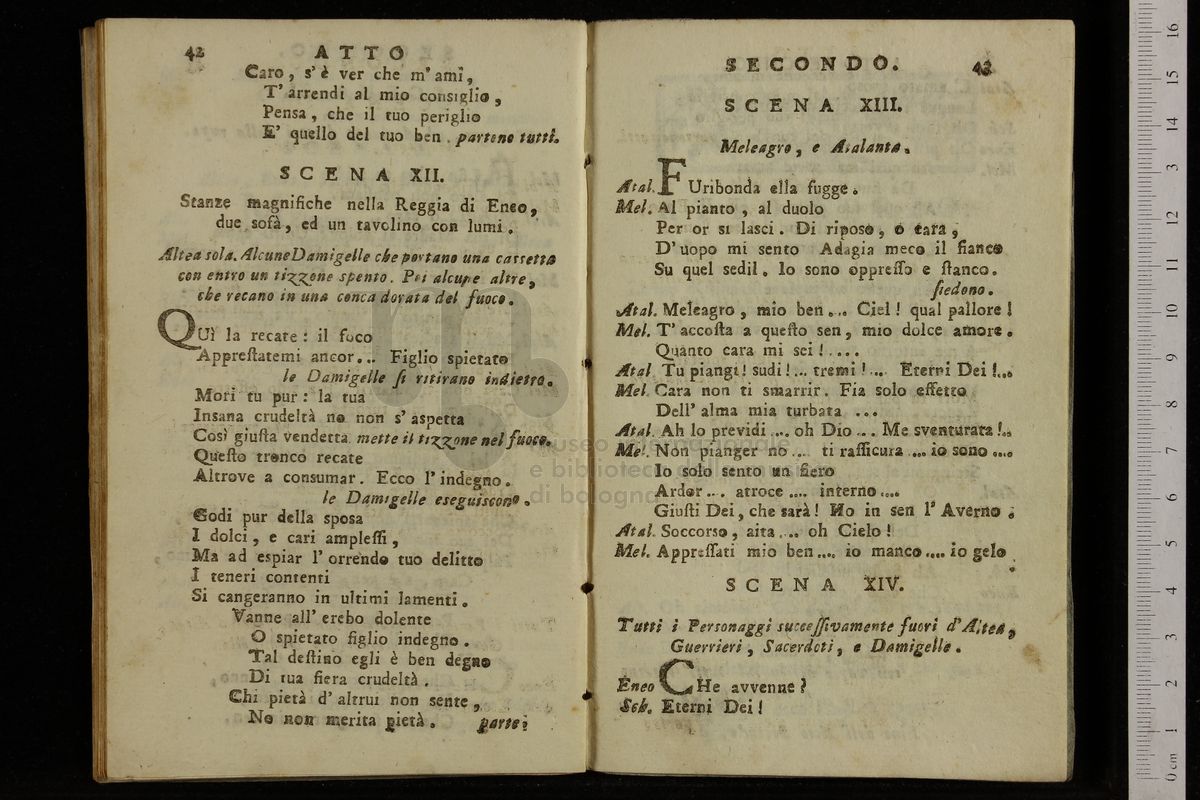 42 ATTO
Caro, s'è ver che m'ami,
T'arrendi al mio consiglio,
Pensa, che il tuo periglio
E' quello del tuo ben. partono tutti.
SCENA XII.
Stanze magnifiche nella Reggia di Eneo,
due sofà, ed un tavolino con lumi.
Altea sola. Alcune Damigelle che portano una cassetta
con entro un tizzone spento. Poi alcune altre,
che recano in una conca dorata del fuoco.
QUì la recate: il foco
Appreſtatemi ancor... Figlio spietato
le Damigelle ſi ritirano indietro.
Mori tu pur: la tua
Insana crudeltà no non s'aspetta
Così giuſta vendetta. mette il tizzone nel fuoco.
Queſto tronco recate
Altrove a consumar. Ecco l'indegno.
le Damigelle eseguiscono.
Godi pur della sposa
I dolci, e cari ampleſſi,
Ma ad espiar l'orrendo tuo delitto
I teneri contenti
Si cangeranno in ultimi lamenti.
Vanne all'erebo dolente
O spietato figlio indegno.
Tal deſtino egli è ben degno
Di tua fiera crudeltà.
Chi pietà d'altrui non sente,
No non merita pietà. parte;
SECONDO. 43
SCENA XIII.
Meleagro, e Atalanta.
Atal. FUribonda ella fugge.
Mel. Al pianto, al duolo
Per or si lasci. Di riposo, o cara,
D'uopo mi sento Adagia meco il fianco
Su quel sedil. Io sono oppreſſo e ſtanco.
ſiedono.
Atal. Meleagro, mio ben... Ciel! qual pallore!
Mel. T'accoſta a queſto sen, mio dolce amore.
Quanto cara mi sei!....
Atal. Tu piangi! sudi!... tremi!... Eterni Dei!...
Mel. Cara non ti smarrir. Fia solo effetto
Dell'alma mia turbata ...
Atal. Ah lo previdi.... oh Dio... Me sventurata!..
Mel. Non pianger no... ti raſſicura .... io sono ....
Io solo sento un fiero
Ardor... atroce .... interno....
Giuſti Dei, che sarà! Ho in sen l'Averno.
Atal. Soccorso, aita.... oh Cielo!
Mel. Appreſſati mio ben.... io manco.... io gelo
SCENA XIV.
Tutti i Personaggi succeſſivamente fuori d'Altea,
Guerrieri, Sacerdoti, e Damigelle.
Eneo CHe avvenne?
Seb. Eterni Dei!
museo internazionale
e biblioteca della musica
di bologna
0 cm 1 2 3 4 5 6 7 8 9 10 11 12 13 14 15 16